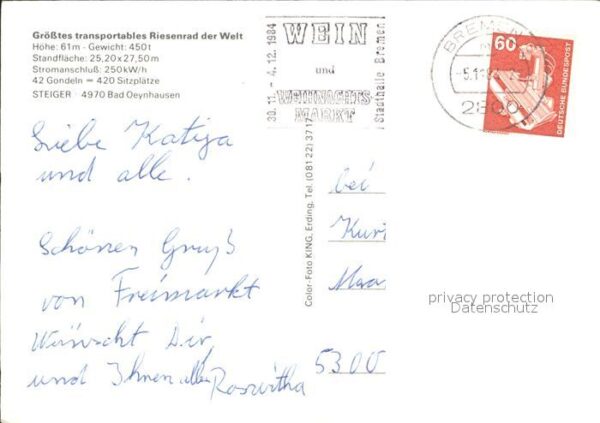 Größtes transportables Riesenrad der Welt
Höhe: 61m - Gewicht: 450t
Standfläche: 25,20x27,50m
Stromanschluß: 250kW/h
42 Gondeln = 420 Sitzplätze
STEIGER · 4970 Bad Oeynhausen
30.11 - 4.12.1984
WEIN
und
WEIHNACHTS
MARKT
Stadthalle Bremen
BREMEN
2800
60
DEUTSCHE BUNDESPOST
Color-Foto KING, Erding, Tel. (08122) 371
Liebe Katija
und alle.
Schönen Gruß
von Freimarkt
Wünscht Dir
und Ihnen allen Roswitha
bei
5300
privacy protection
Datenschutz